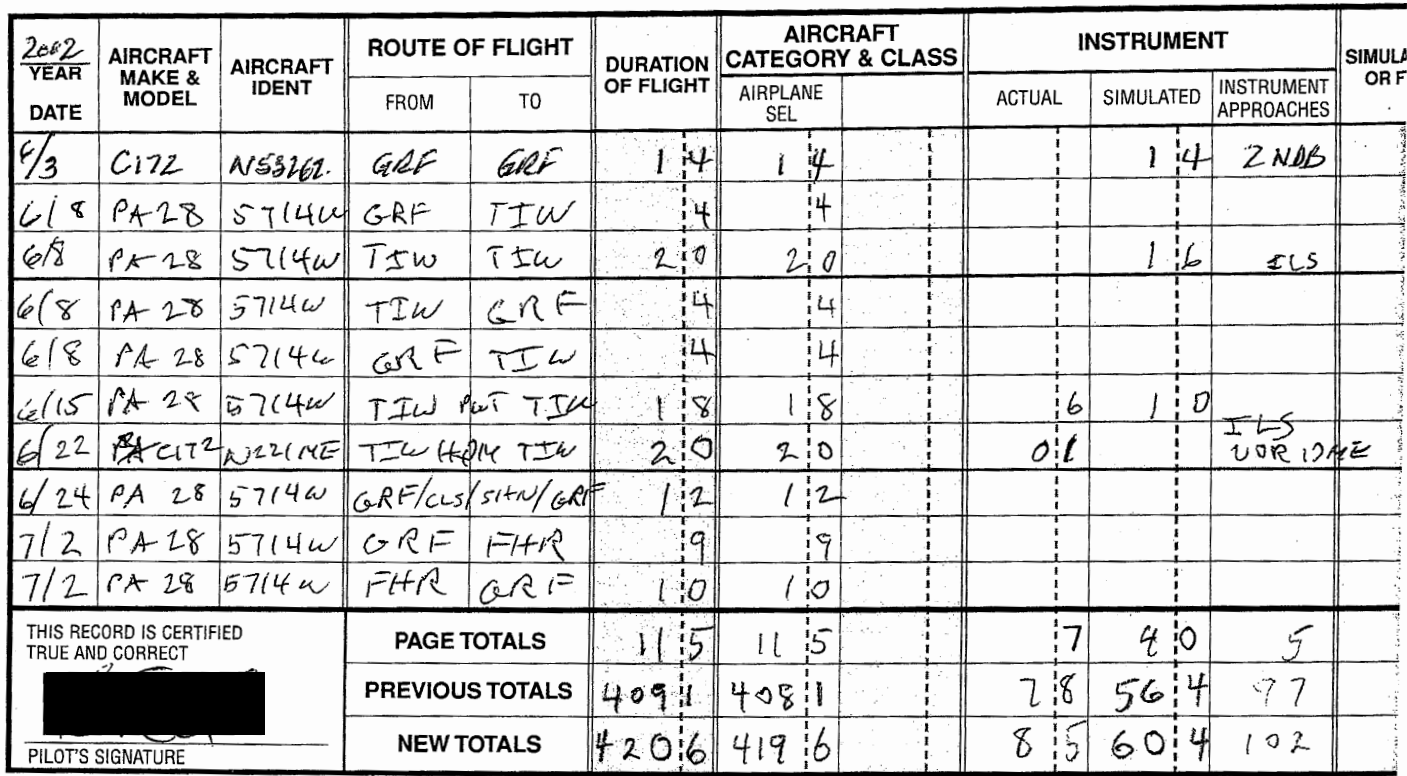 2002 YEAR DATE AIRCRAFT MAKE & MODEL AIRCRAFT IDENT ROUTE OF FLIGHT FROM TO DURATION OF FLIGHT AIRCRAFT CATEGORY & CLASS AIRPLANE SEL INSTRUMENT ACTUAL SIMULATED INSTRUMENT APPROACHES SIMULA OR F
6/3 C172 N53262. GRF GRF 1 4 1 4 1 4 2 NDB
6/8 PA 28 5714W GRF TIW 4 4
6/8 PA-28 5714W TIW TIW 2 0 2 0 1 6 ILS
6/8 PA-28 5714W TIW GRF 4 4
6/8 PA 28 5714W GRF TIW 4 4
6/15 PA 28 5714W TIW PWT TIW 1 8 1 8 6 1 0
6/22 C172 N221ME TIW HQM TIW 2 0 2 0 0 1 ILS VOR DME
6/24 PA 28 5714W GRF/CLS/SHN/GRF 1 2 1 2
7/2 PA-28 5714W GRF FHR 9 9
7/2 PA 28 5714W FHR GRF 1 0 1 0
THIS RECORD IS CERTIFIED TRUE AND CORRECT
PAGE TOTALS 11 5 11 5 7 4 0 5
PREVIOUS TOTALS 409 1 408 1 7 8 56 4 97
NEW TOTALS 420 6 419 6 8 5 60 4 102
PILOT'S SIGNATURE